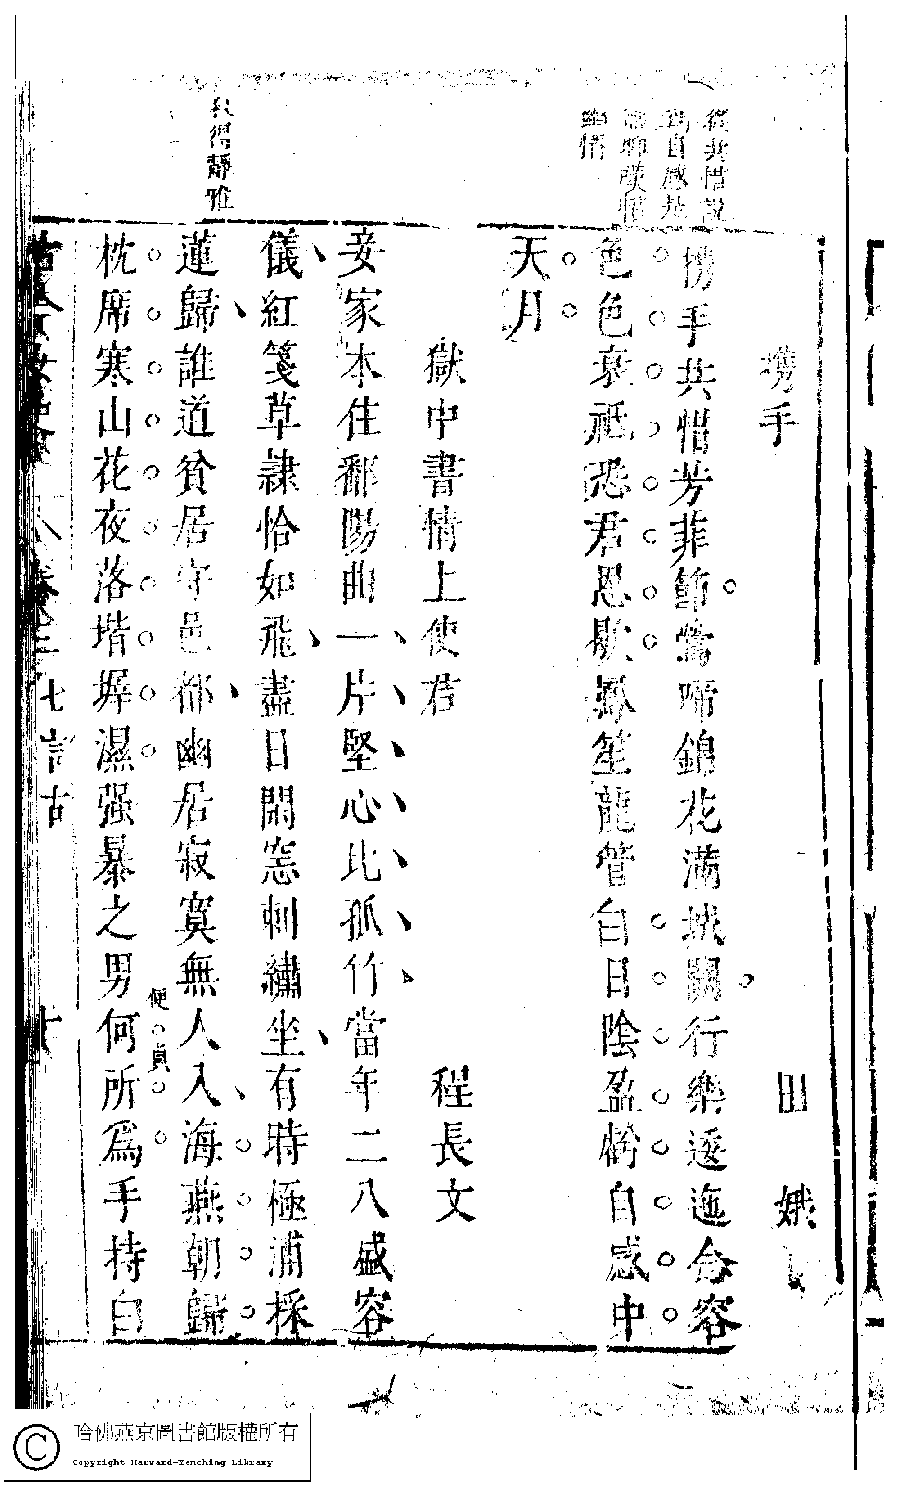 從共惜說
到自感是
幽情
攜手
田娥
攜手共惜芳菲節鶯啼錦花滿城闕行樂逶迤念容
色色衰祗恐君恩歇鳳笙龍管白日陰盈虧自感中
天月
獄中書情上使君
程長文
妾家本住鄱陽曲一片堅心比孤竹當年二八盛容
說得靜雅
儀紅箋草隸恰如飛盡日閒窓刺繡坐有時極浦採
蓮歸誰道貧居守邑都幽居寂寞無人入海燕朝歸
枕席寒山花夜落堦墀濕强暴之男何所爲手持白
便貞
卷之二
七言古
十
哈佛燕京圖書館版權所有
Copyright Harvard-Yenching Library